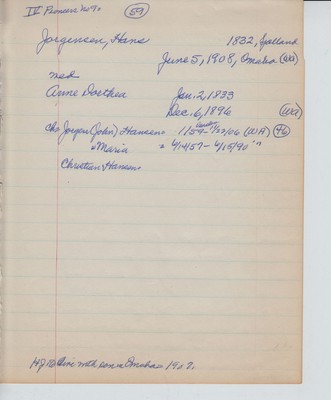 IV Pioneer No 90 59
Jorgensen, Hans 1832, Jylland
June 5, 1908, Omaha (WA)
med
Anne Dorthea Jan. 2, 1833
Dec. 6, 1896 (WA)
Ch: Jorgen (John) Hansen 1/59- 1/22/06 (WA) 76
" Maria " 4/14/57 - 4/15/90 " "
Christian Hansen
live with son in Omaha 1902.